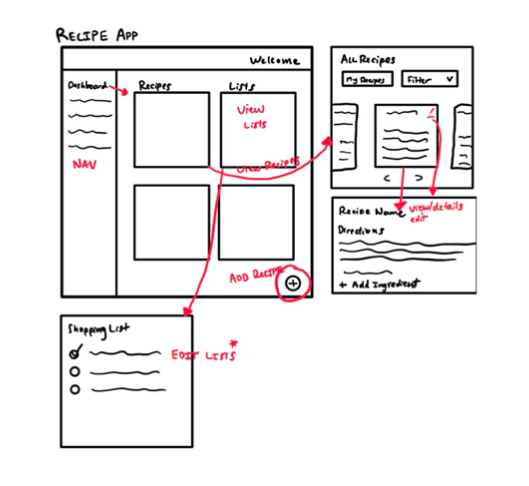 RECIPE APP
Welcome
Dashboard
Recipes
Lists
View
Lists
NAV
View Recipes
ADD RECIPE
+
All Recipes
My Recipes
Filter
< >
Recipe Name
View/details
edit
Directions
+ Add Ingredient
Shopping List
EDIT LISTS*